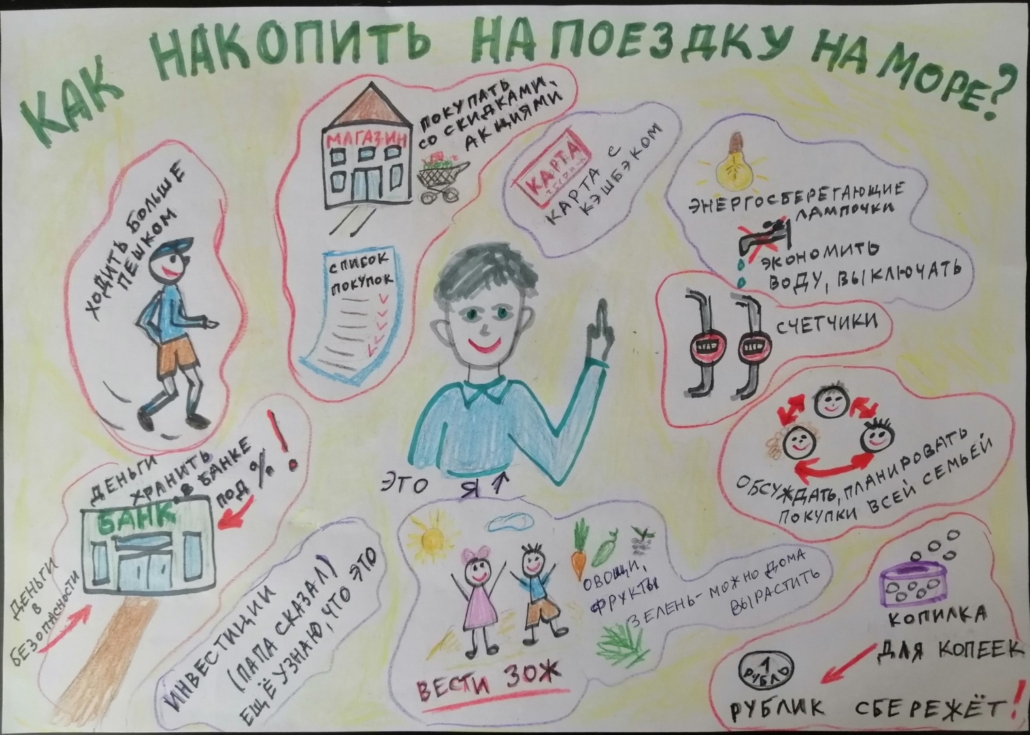 КАК НАКОПИТЬ НА ПОЕЗДКУ НА МОРЕ?
ХОДИТЬ БОЛЬШЕ
ПЕШКОМ
МАГАЗИН
ПОКУПАТЬ
СО СКИДКАМИ,
АКЦИЯМИ
СПИСОК
ПОКУПОК
КАРТА
КАРТА С
КЭШБЭКОМ
ЭНЕРГОСБЕРЕГАЮЩИЕ
ЛАМПОЧКИ
ЭКОНОМИТЬ
ВОДУ, ВЫКЛЮЧАТЬ
СЧЕТЧИКИ
ОБСУЖДАТЬ, ПЛАНИРОВАТЬ
ПОКУПКИ ВСЕЙ СЕМЬЕЙ
ЭТО Я
ДЕНЬГИ
ХРАНИТЬ
В БАНКЕ
ПОД %!
БАНК
ДЕНЬГИ
В
БЕЗОПАСНОСТИ
ИНВЕСТИЦИИ
(ПАПА СКАЗАЛ)
ЕЩЁ УЗНАЮ, ЧТО ЭТО
ОВОЩИ,
ФРУКТЫ
ЗЕЛЕНЬ - МОЖНО ДОМА
ВЫРАСТИТЬ
ВЕСТИ ЗОЖ
КОПИЛКА
ДЛЯ КОПЕЕК
1
РУБЛЬ
РУБЛИК СБЕРЕЖЁТ!